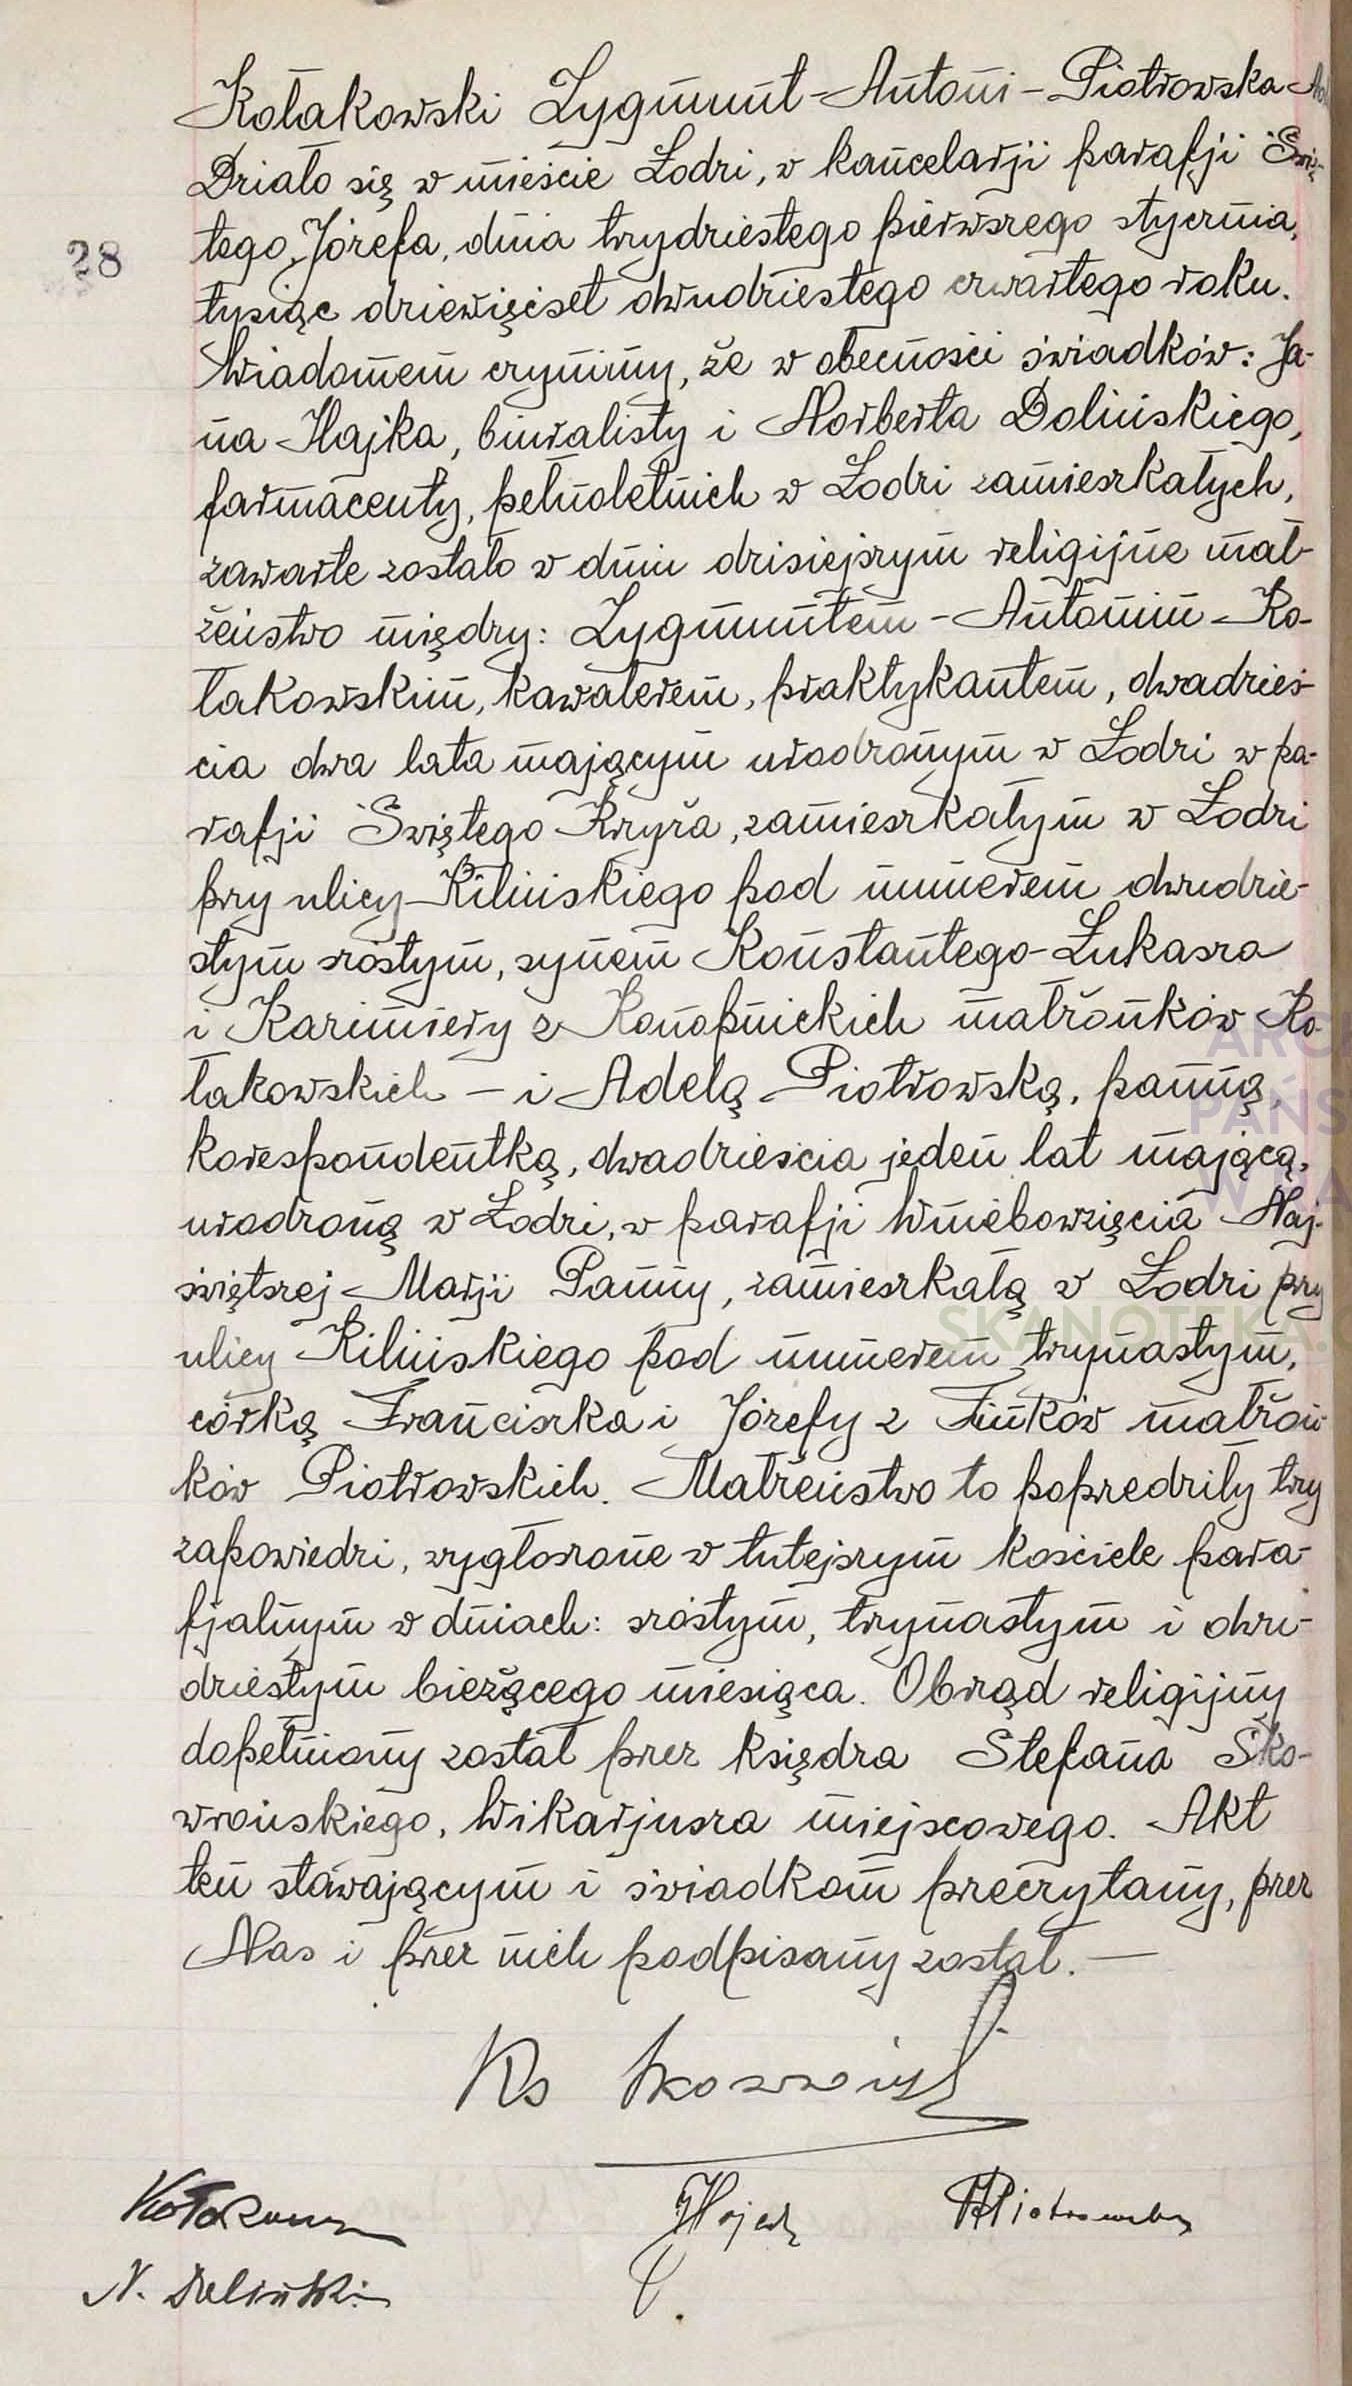 Kołakowski Zygmunt-Antoni-Piotrowska
Działo się w mieście Łodzi, w kancelarji parafji Świę-
28
tego Józefa, dnia trzydziestego pierwszego stycznia,
tysiąc dziewięćset dwudziestego czwartego roku.
Wiadomem czynimy, że w obecności świadków: Ja-
na Hajka, biuralisty i Norberta Dolińskiego,
farmaceuty, pełnoletnich w Łodzi zamieszkałych,
zawarte zostało w dniu dzisiejszym religijne mał-
żeństwo między: Zygmuntem-Antonim Ko-
łakowskim, kawalerem, praktykantem, dwadzieś-
cia dwa lata mającym urodzonym w Łodzi w pa-
rafji Świętego Krzyża, zamieszkałym w Łodzi
przy ulicy Kilińskiego pod numerem dwudzie-
stym szóstym, synem Konstantego-Łukasza
i Kazimiery z Konopnickich małżonków Ko-
łakowskich – i Adelą Piotrowską, panną,
korespondentką, dwadzieścia jeden lat mającą,
urodzoną w Łodzi, w parafji Wniebowzięcia Naj-
świętszej Marji Panny, zamieszkałą w Łodzi przy
ulicy Kilińskiego pod numerem trzynastym,
córką Franciszka i Józefy z Finków małżon-
ków Piotrowskich. Małżeństwo to poprzedziły trzy
zapowiedzi, wygłoszone w tutejszym kościele para-
fjalnym w dniach: szóstym, trzynastym i dwu-
dziestym bieżącego miesiąca. Obrząd religijny
dopełniony został przez księdza Stefana Sko-
wrońskiego, Wikarjusza miejscowego. Akt
ten stawającym i świadkom przeczytany, przez
Nas i przez nich podpisany został. —
Ks Skowroński
Kołakowski
JHajek
APiotrowska
N. Doliński
ARCH
PAŃS
W
SKANOTEKA.